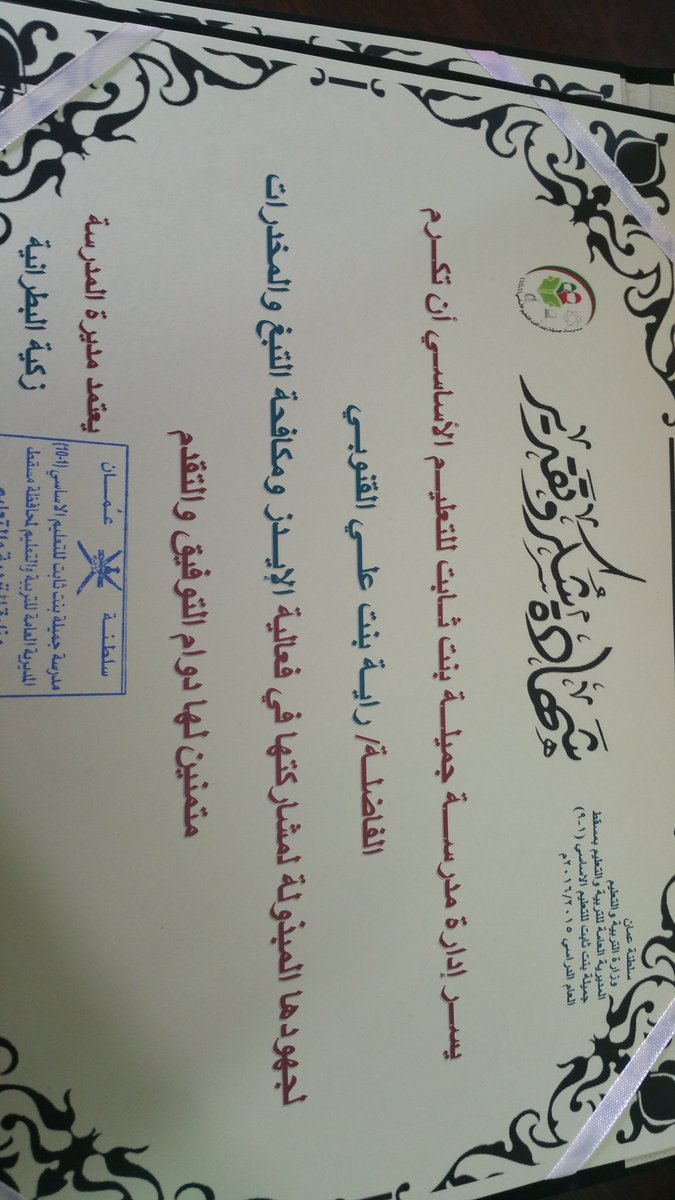 سلطنة عمان
وزارة التربية والتعليم
المديرية العامة للتربية والتعليم بمسقط
جميلة بنت ثابت للتعليم الاساسي (١-٩)
العام الدراسي ٢٠١٦/٢٠١٥م
شهادة شكر وتقدير
يسر إدارة مدرسة جميلة بنت ثابت للتعليم الأساسي أن تكرم
الفاضلة/ راية بنت علي القنوبي
لجهودها المبذولة لمشاركتها في فعالية الإيدز ومكافحة التبغ والمخدرات
متمنين لها دوام التوفيق والتقدم
يعتمد مديرة المدرسة
زكية البطرانية
سلطنة عمان
مدرسة جميلة بنت ثابت للتعليم الاساسي (1-10)
المديرية العامة للتربية والتعليم لمحافظة مسقط